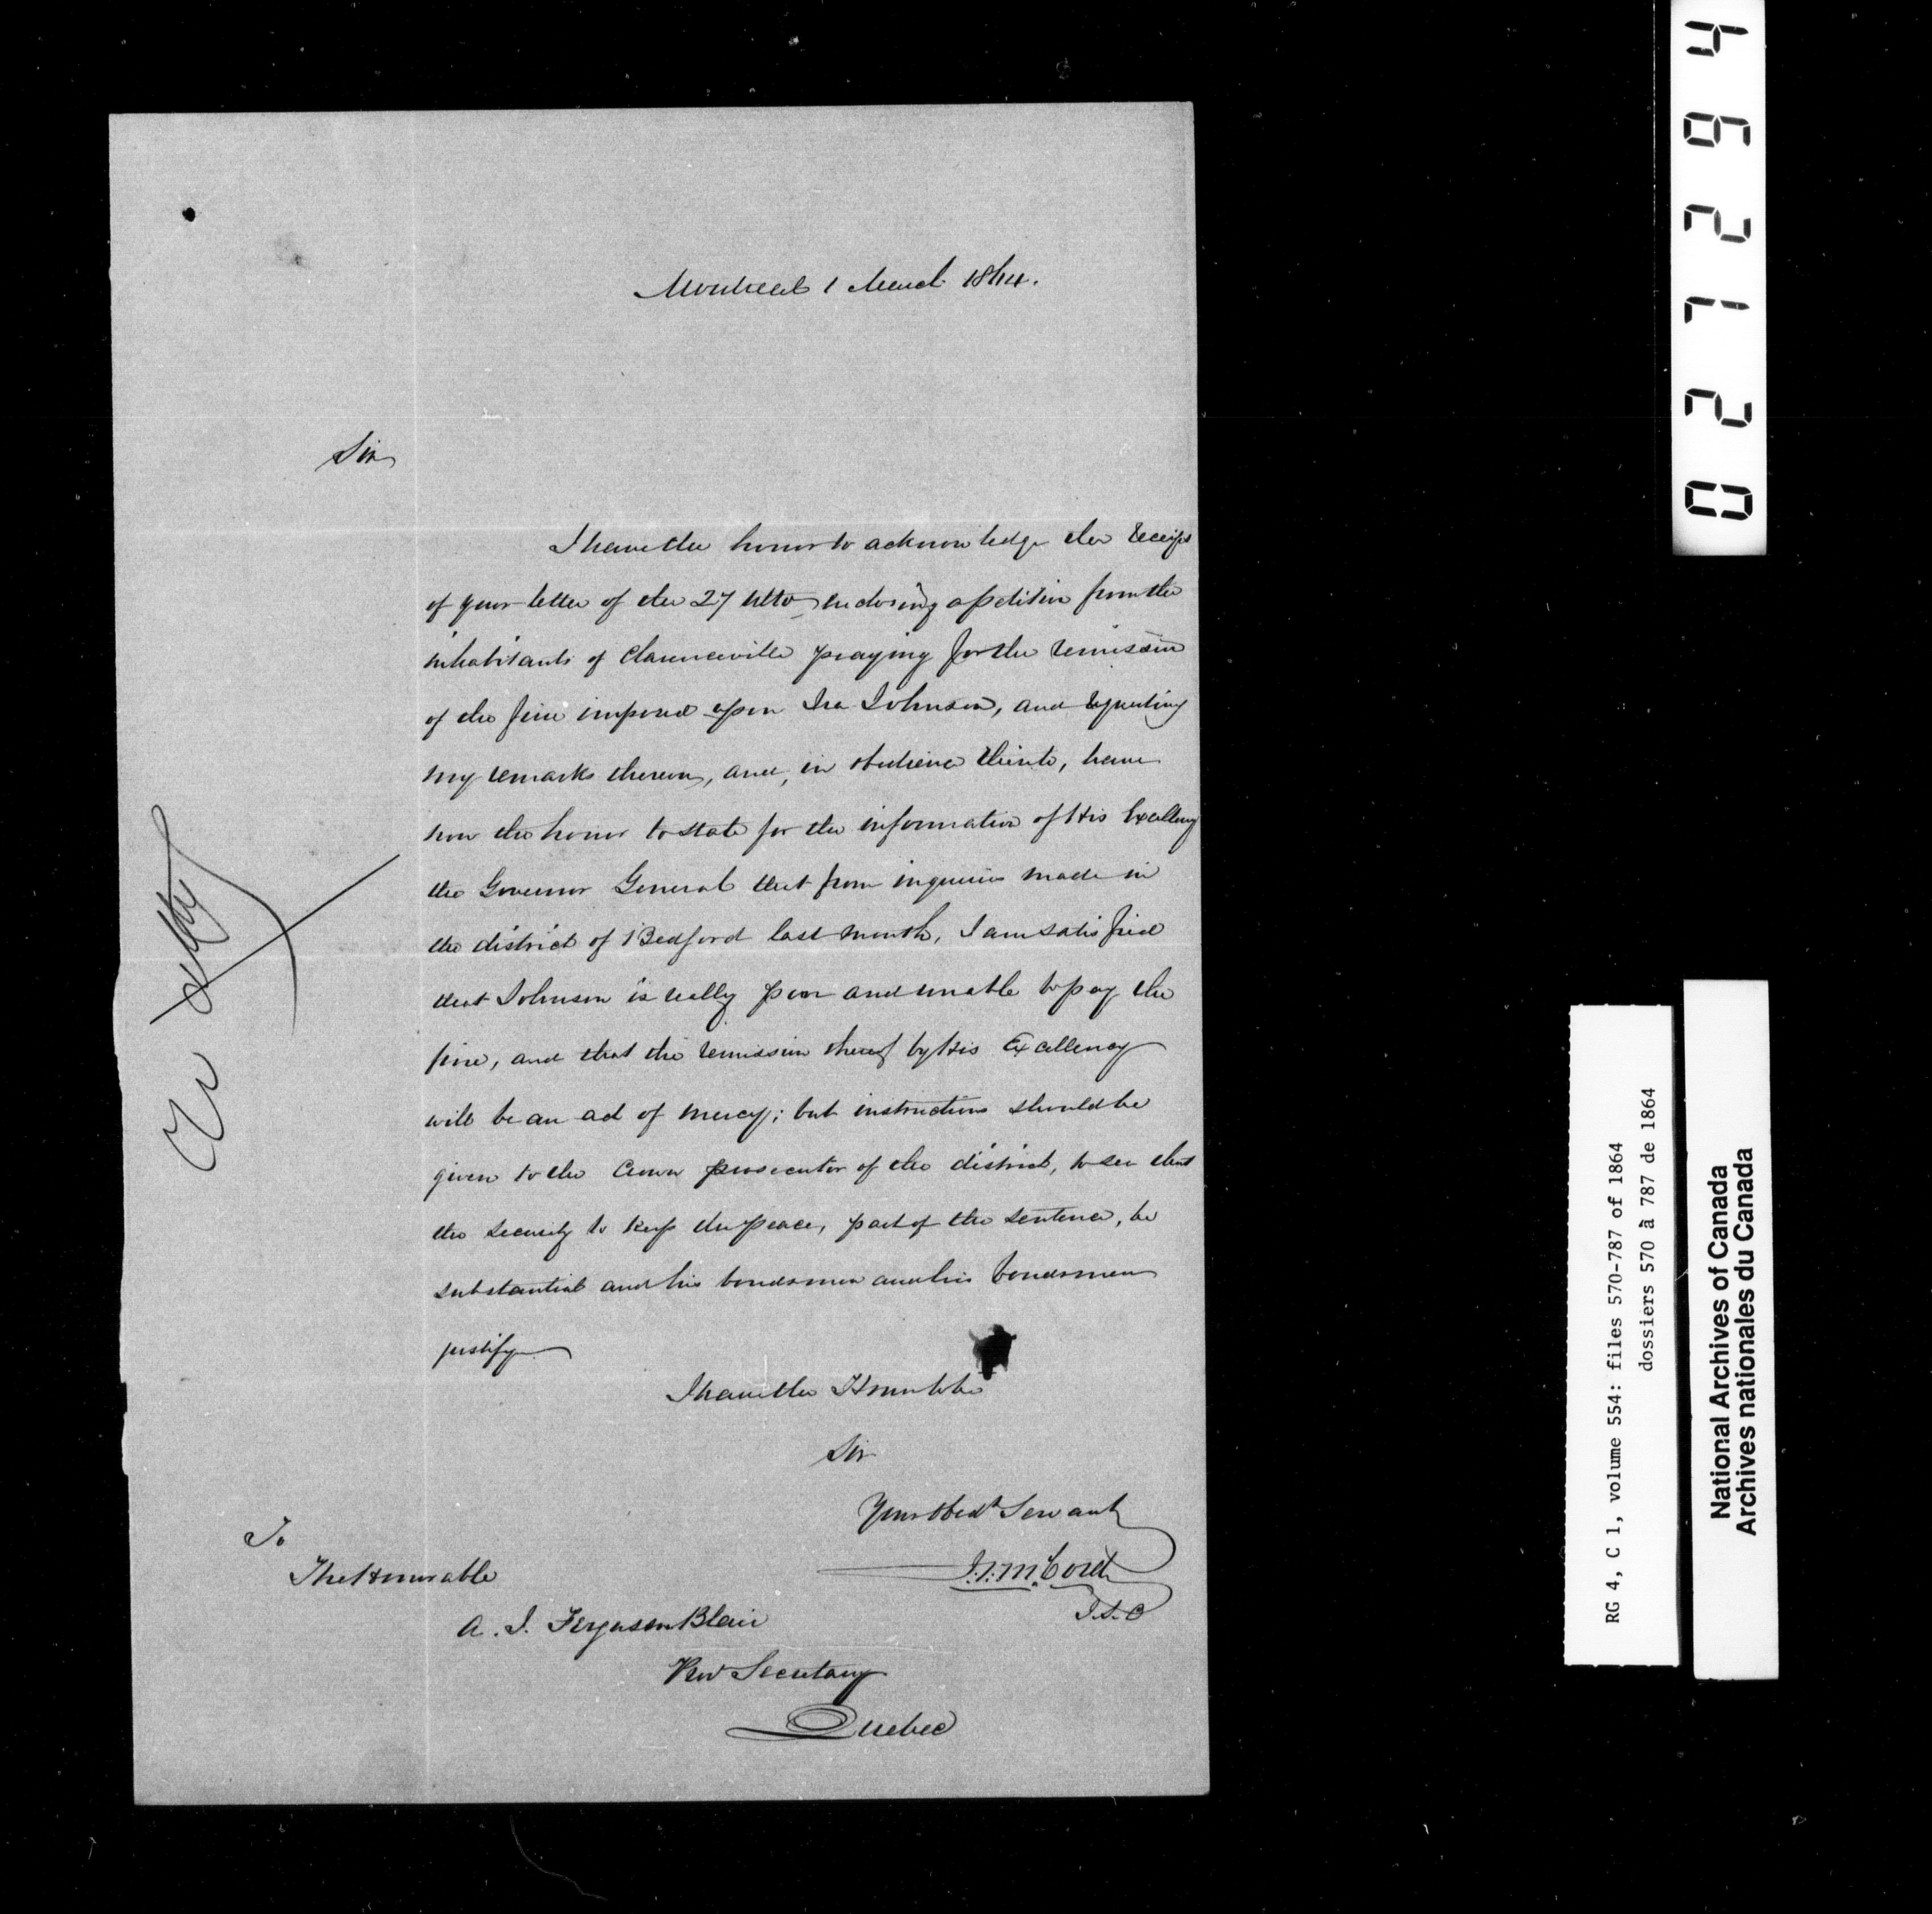 Montreal 1 March 1864.
Sir
I have the honor to acknowledge the receipt
of your letter of the 27 ulto enclosing a petition from the
inhabitants of Clarenceville praying for the remission
of the fine imposed upon Ira Johnson, and requesting
my remarks thereon, and, in obedience thereto, have
now the honor to state for the information of His Excellency
the Governor General that from inquiries made in
the district of Bedford last month, I am satisfied
that Johnson is really poor and unable to pay the
fine, and that the remission thereof by His Excellency
will be an act of mercy; but instructions should be
given to the Crown prosecutor of the district, to see that
the security to keep the peace, part of the sentence, be
substantial and his bondsmen and his bondsmen
justify
I have the Honor to be
Sir
Your Obedt Servant
J.S. McCord
J.S.C
To
The Honorable
A. J. Ferguson Blair
Prov Secretary
Quebec
027294
RG 4, C 1, volume 554: files 570-787 of 1864
dossiers 570 à 787 de 1864
National Archives of Canada
Archives nationales du Canada